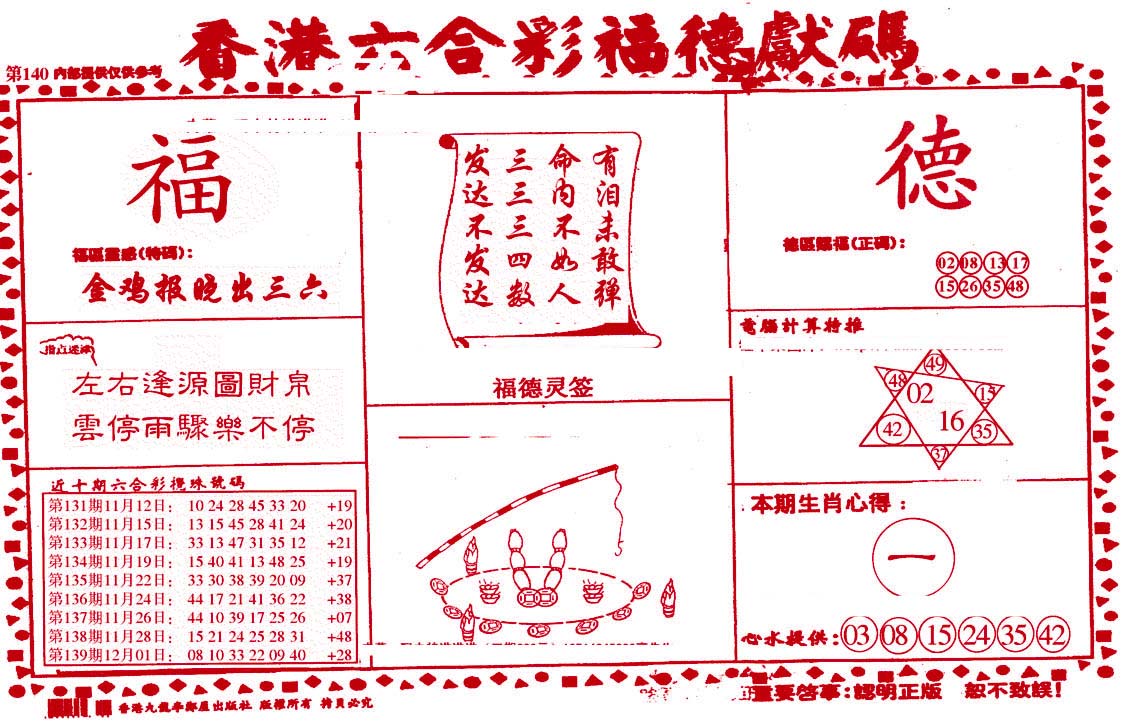 香港六合彩福德獻碼
第140 内部提供仅供参考
福
福區靈感(特碼):
金鸡报晓出三六
指点迷津
左右逢源圖財帛
雲停雨驟樂不停
近十期六合彩攪珠號碼
第131期11月12日: 10 24 28 45 33 20 +19
第132期11月15日: 13 15 45 28 41 24 +20
第133期11月17日: 33 13 47 31 35 12 +21
第134期11月19日: 15 40 41 13 48 25 +19
第135期11月22日: 33 30 38 39 20 09 +37
第136期11月24日: 44 17 21 41 36 22 +38
第137期11月26日: 44 10 39 17 25 26 +07
第138期11月28日: 15 21 24 25 28 31 +48
第139期12月01日: 08 10 33 22 09 40 +28
有泪未敢弹
命内不如人
三三三四数
发达不发达
福德灵签
德
德區賜福(正碼):
02 08 13 17
15 26 35 48
電腦計算特推
49
48 02 15
42 16 35
37
本期生肖心得:
一
心水提供: 03 08 15 24 35 42
香港九龍 出版社 版權所有
重要啓事:認明正版 恕不致誤!